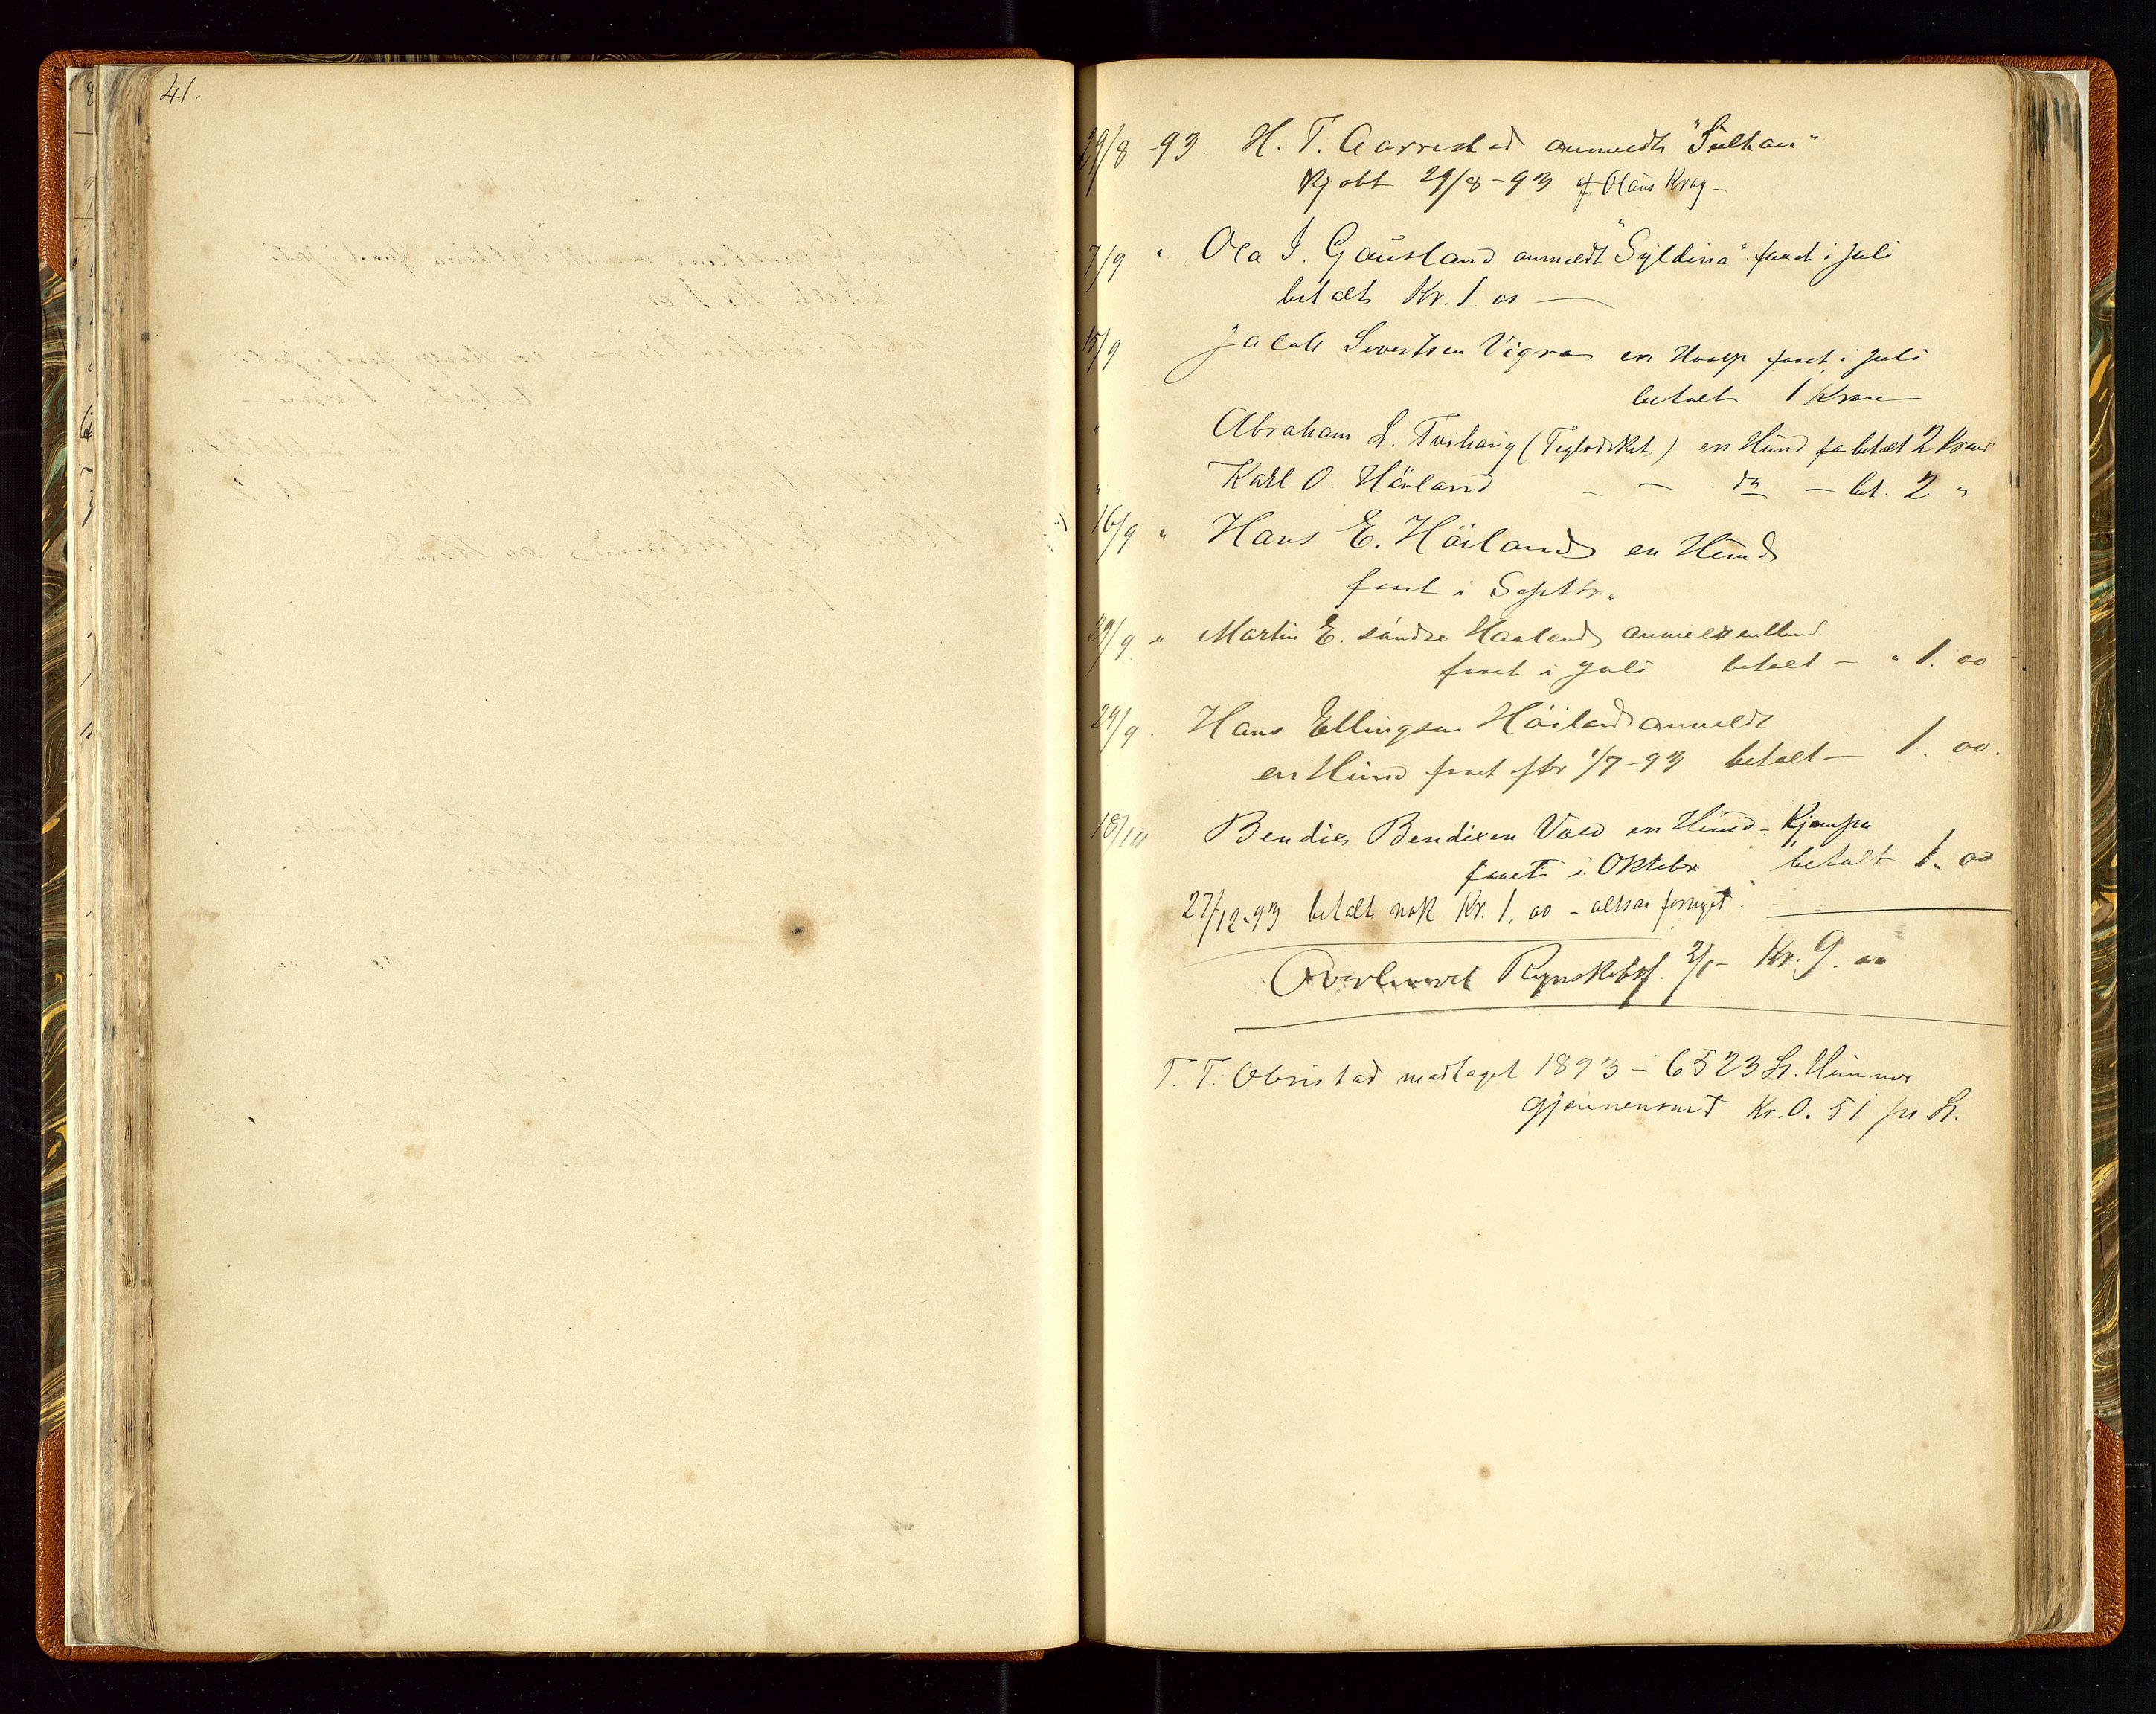 41.
29/8 -93. H. T. Aarrestad anmeldt "Sultan"
Kjøbt 29/8 -93 af Olaus Krag -
7/9 " Ola I. Gausland anmeldt "Syldina" faaet i Juli
betalt Kr. 1. 00 —
15/9 Jakob Sivertsen Vigre en Hvalp faaet i Juli
betalt 1 Krone
" Abraham L. Tvihaug ( ) en Hund betalt 2 Kroner
" Karl O. Håland — — do — bet. 2 "
16/9 " Hans E. Höiland en Hund
faaet i Septbr.
29/9 " Martin E. söndre Haaland anmeldt en Hund
faaet i Juli betalt — " 1. 00
29/9 . Hans Ellingsen Höiland anmeldt
en Hund faaet efter 1/7 -93 betalt — 1. 00.
18/10 Bendix Bendixen Vold en Hund - Kjæmpa
faaet i Oktober betalt 1. 00
27/12-93 betalt nok Kr. 1. 00 - altsaa fornyet.
Overleveret 2/1 - Kr. 9. 00
T. T. Obrestad modtaget 1893 - 6523 L. Hummer
gjennemsnit Kr. 0. 51 pr L.